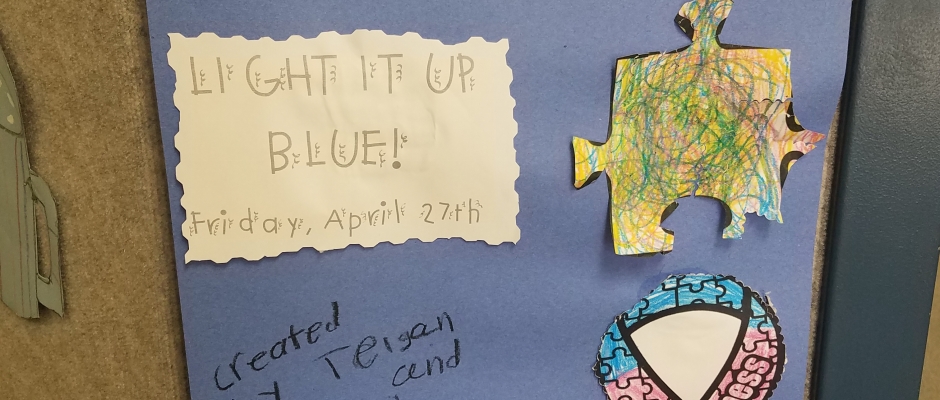 LIGHT IT UP
BLUE!
Friday, April 27th
created
Teigan
and